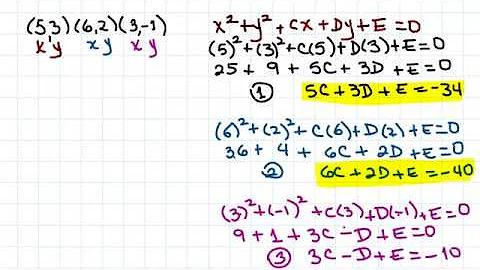 (5,3)(6,2)(3,-1)
x y x y x y
x²+y²+Cx+Dy+E=0
(5)²+(3)²+C(5)+D(3)+E=0
25 + 9 + 5C+3D+E=0
① 5C+3D+E=-34
(6)²+(2)²+C(6)+D(2)+E=0
36+ 4 + 6C+2D+E=0
② 6C+2D+E=-40
(3)²+(-1)²+C(3)+D(-1)+E=0
9+1+3C-D+E=0
③ 3C-D+E=-10